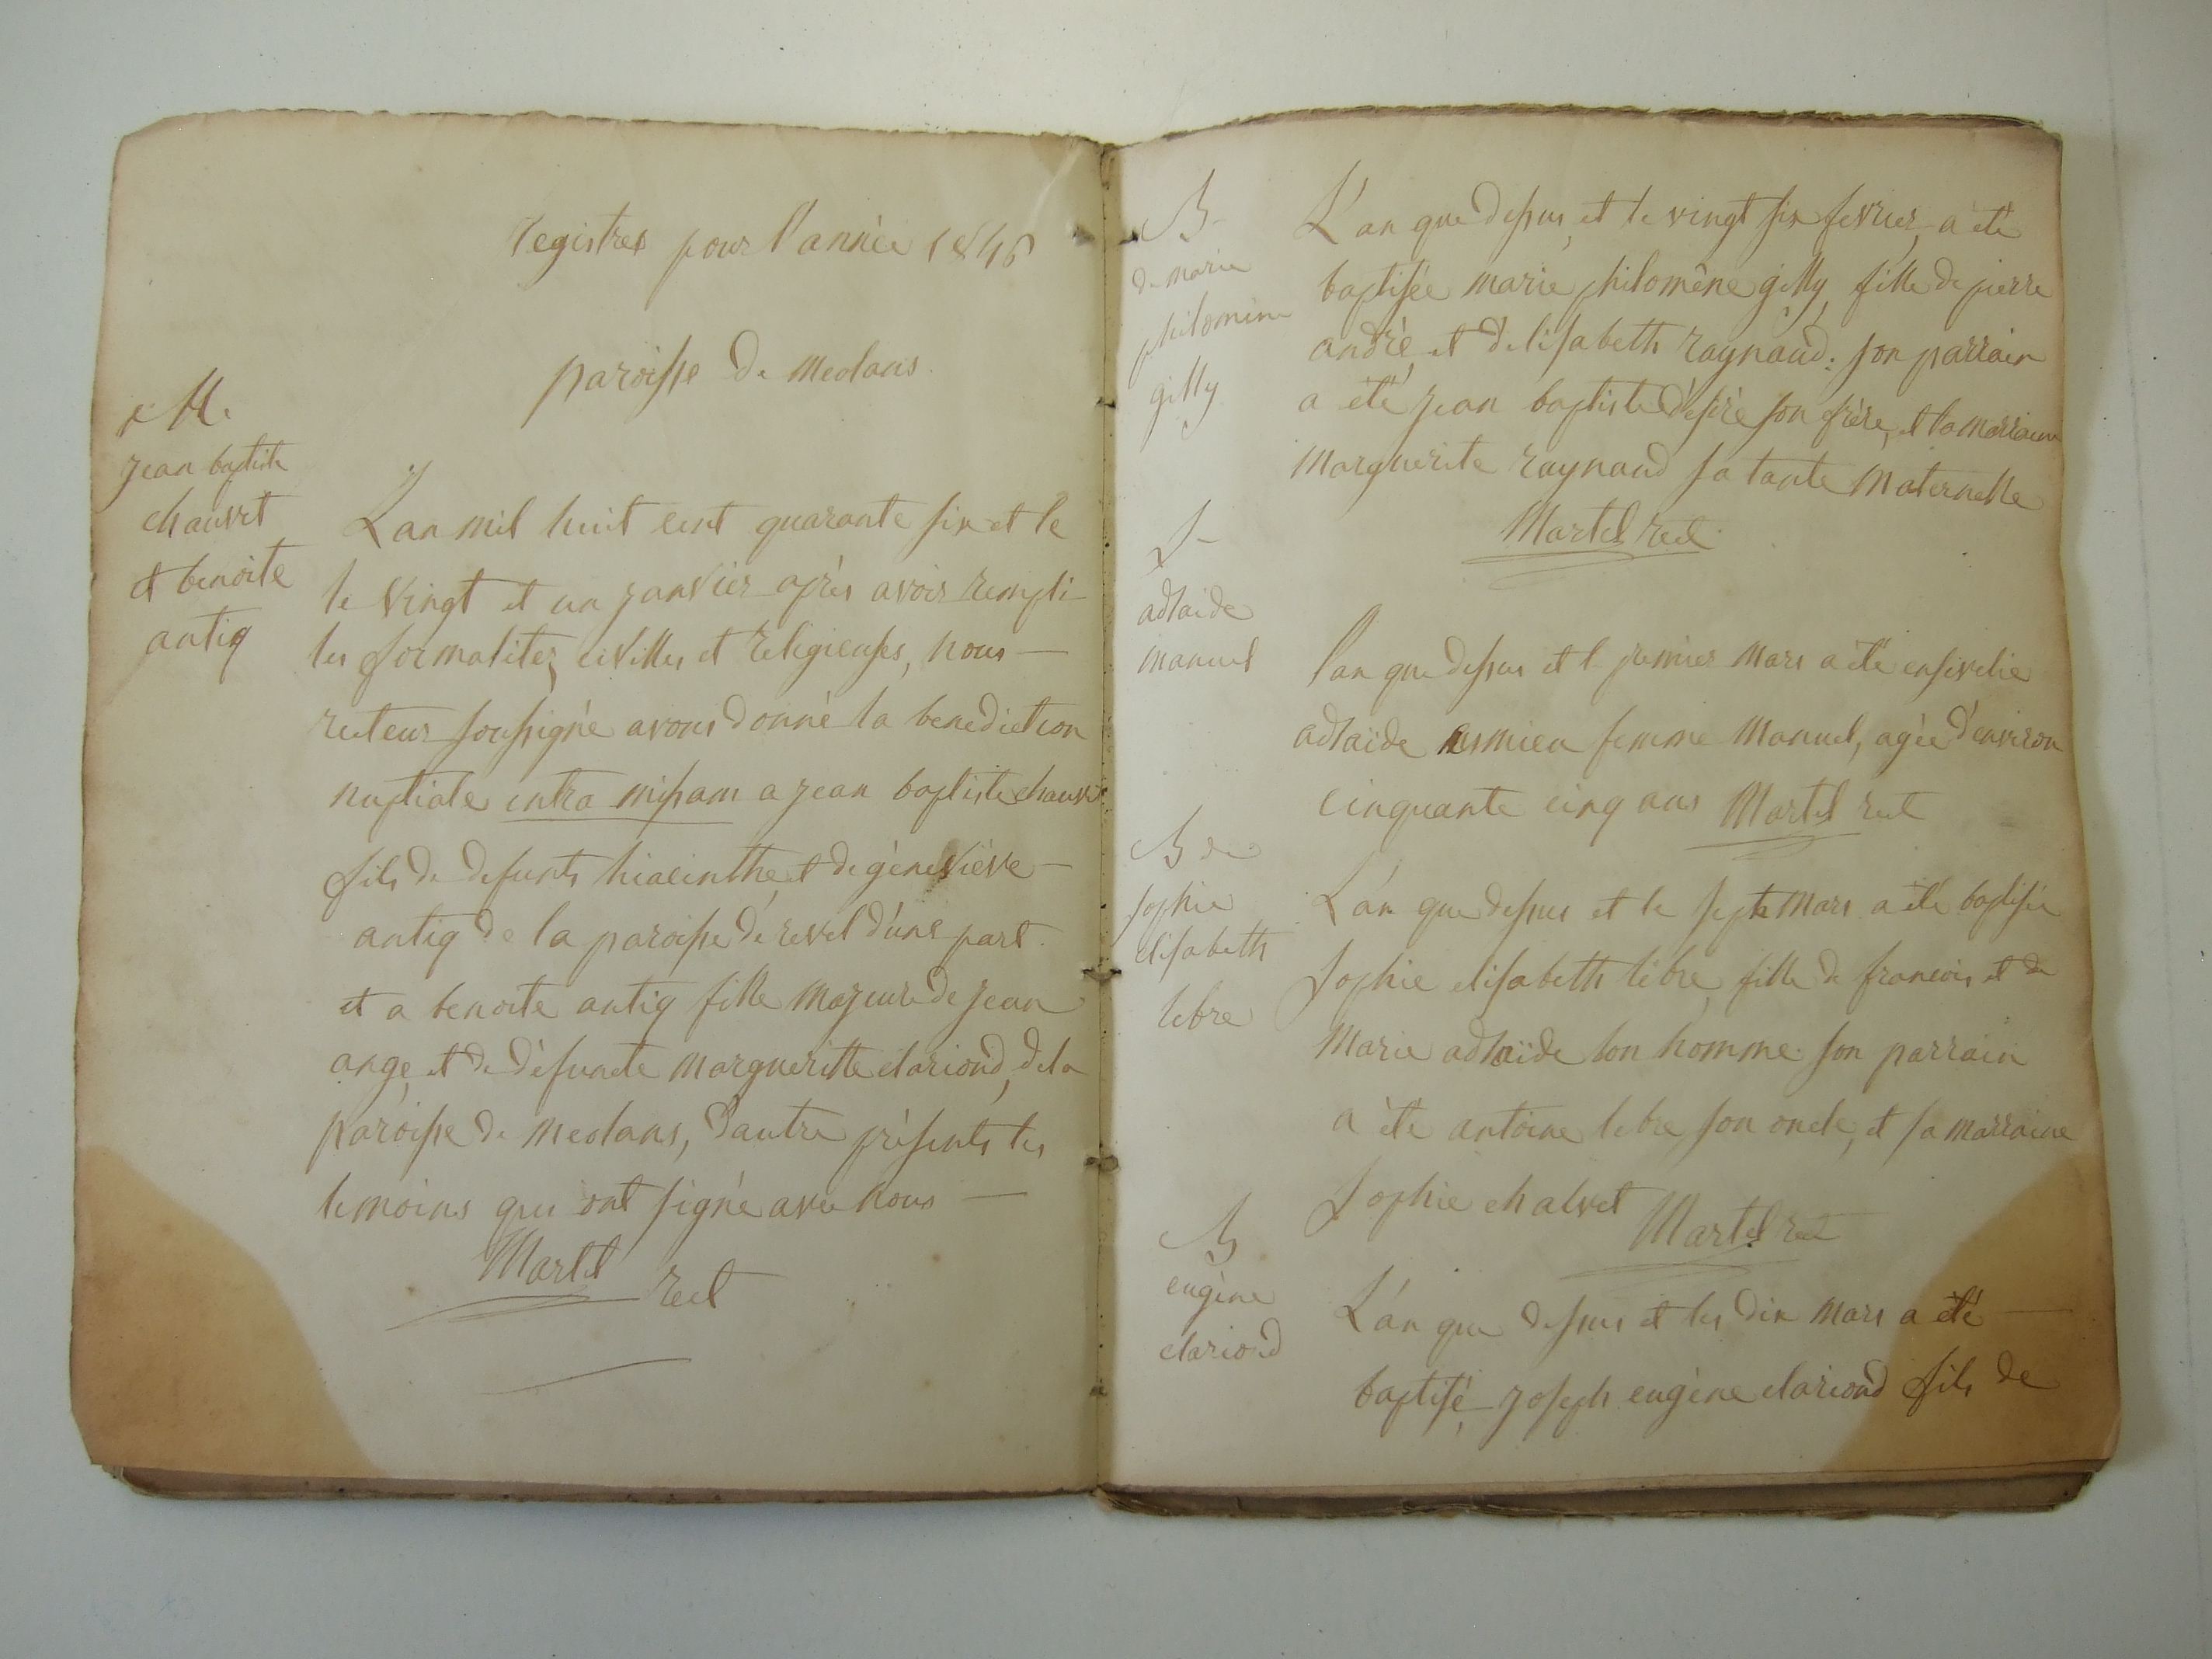 registres pour l'année 1846
paroisse de meolans.
M.
jean baptiste
chauvet
et benoite
antiq
L'an mil huit cent quarante six et le
le vingt et un janvier après avoir rempli
les formalitez civilles et religieuses, nous —
recteur soussigné avons donné la benediction
nuptiale intra missam a jean baptiste chauvet
fils de defunts hiacinthe, et de gèneviève —
antiq de la paroisse de revel d'une part.
et a benoite antiq fille majeure de jean
ange, et de défuncte margueritte clariond, de la
paroisse de meolans, d'autre présents les
temoins qui ont signé avec nous —
Martel rect
B
de marie
philomène
gilly
L'an que dessus, et le vingt six fevrier, a été
baptisée marie philomène gilly, fille de pierre
andré, et d'elisabeth raynaud: son parrain
a été jean baptiste désiré son frère, et la marraine
marguerite raynaud sa tante maternelle
Martel rect.
S
adlaide
manuel
l'an que dessus et l premier mars a été ensivelie
adlaïde femme manuel, agée d'environ
cinquante cinq ans Martel rect
B de
sophie
elisabeth
lebre
L'an que dessus et le sept mars a été baptisée
Sophie elisabeth lebre, fille de francois et de
marie adlaïde bon homme. son parrain
a été antoine lebre, son oncle, et sa marraine
Sophie chalvet Martel rect
B
eugène
clariond
L'an que dessus et les dix mars a été —
baptisé, joseph eugène clariond fils de